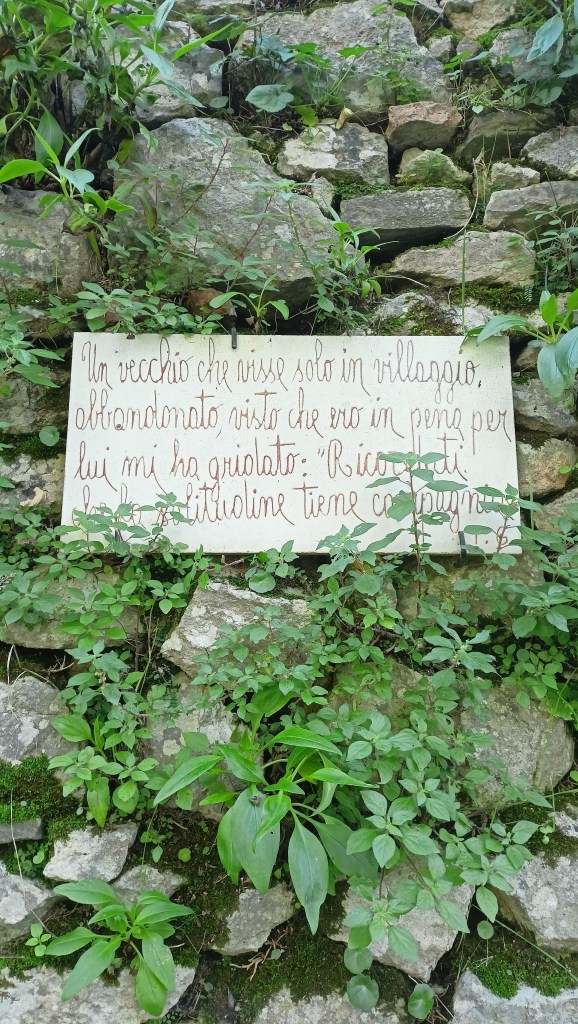 Un vecchio che visse solo in villaggio,
abbandonato, visto che ero in pena per
lui mi ha gridato: "Ricordati
che la solitudine tiene compagnia